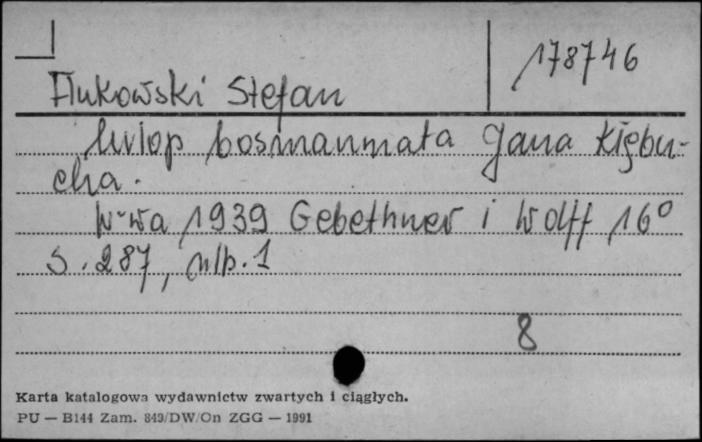 178746
Flukowski Stefan
Urlop bosmanmata Jana Kłębu-
cha.
W-wa 1939 Gebethner i Wolff 16°
S. 287, nlb. 1
8
Karta katalogowa wydawnictw zwartych i ciągłych.
PU — B144 Zam. 849/DW/On ZGG — 1991